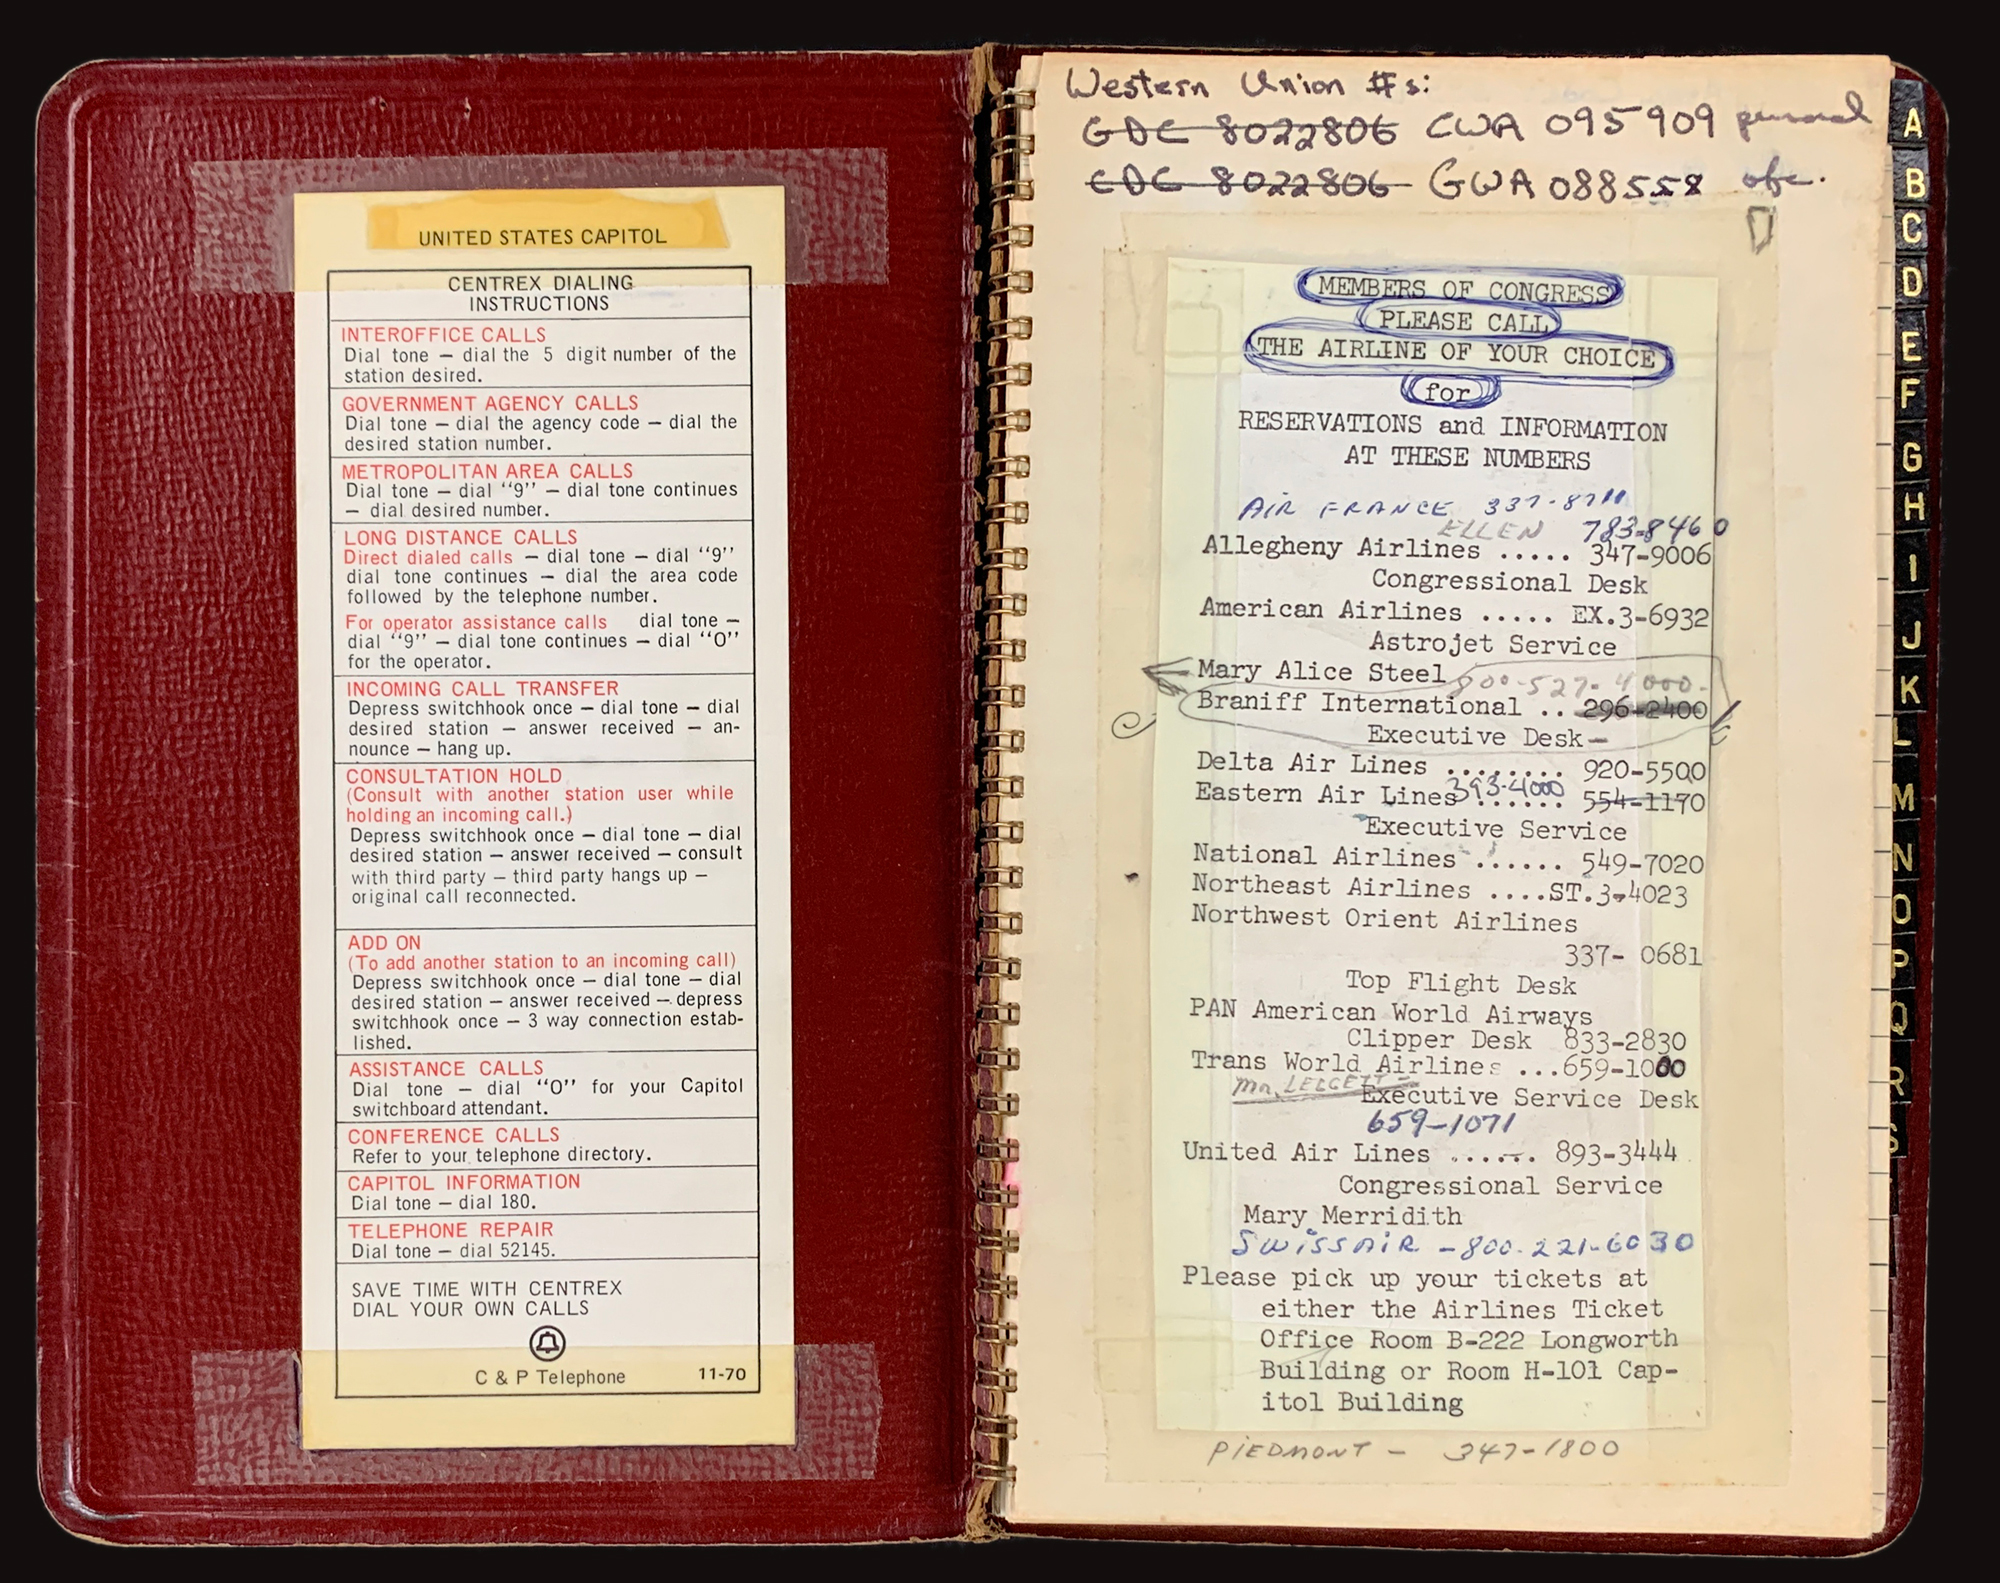 UNITED STATES CAPITOL
CENTREX DIALING
INSTRUCTIONS
INTEROFFICE CALLS
Dial tone — dial the 5 digit number of the
station desired.
GOVERNMENT AGENCY CALLS
Dial tone — dial the agency code — dial the
desired station number.
METROPOLITAN AREA CALLS
Dial tone — dial “9” — dial tone continues
— dial desired number.
LONG DISTANCE CALLS
Direct dialed calls — dial tone — dial “9”
dial tone continues — dial the area code
followed by the telephone number.
For operator assistance calls dial tone —
dial “9” — dial tone continues — dial “O”
for the operator.
INCOMING CALL TRANSFER
Depress switchhook once — dial tone — dial
desired station — answer received — an-
nounce — hang up.
CONSULTATION HOLD
(Consult with another station user while
holding an incoming call.)
Depress switchhook once — dial tone — dial
desired station — answer received — consult
with third party — third party hangs up —
original call reconnected.
ADD ON
(To add another station to an incoming call)
Depress switchhook once — dial tone — dial
desired station — answer received — depress
switchhook once — 3 way connection estab-
lished.
ASSISTANCE CALLS
Dial tone — dial “O” for your Capitol
switchboard attendant.
CONFERENCE CALLS
Refer to your telephone directory.
CAPITOL INFORMATION
Dial tone — dial 180.
TELEPHONE REPAIR
Dial tone — dial 52145.
SAVE TIME WITH CENTREX
DIAL YOUR OWN CALLS
C & P Telephone 11-70
Western Union #s:
GDC 8022806 CWA 095909 personal
CDC 8022806 GWA 088558 ofc.
MEMBERS OF CONGRESS
PLEASE CALL
THE AIRLINE OF YOUR CHOICE
for
RESERVATIONS and INFORMATION
AT THESE NUMBERS
AIR FRANCE 337-8711
ELLEN 783-8460
Allegheny Airlines ..... 347-9006
Congressional Desk
American Airlines ..... EX.3-6932
Astrojet Service
Mary Alice Steel 800-527-4000-
Braniff International .. 296-2400
Executive Desk—
Delta Air Lines ........ 920-5500
393-4000
Eastern Air Lines ...... 554-1170
Executive Service
National Airlines ...... 549-7020
Northeast Airlines ....ST.3-4023
Northwest Orient Airlines
337- 0681
Top Flight Desk
PAN American World Airways
Clipper Desk 833-2830
Trans World Airlines ...659-1000
Mr. LEGGETT —
Executive Service Desk
659-1071
United Air Lines ...... 893-3444
Congressional Service
Mary Merridith
SWISSAIR - 800-221-6030
Please pick up your tickets at
either the Airlines Ticket
Office Room B-222 Longworth
Building or Room H-101 Cap-
itol Building
PIEDMONT - 347-1800
A
B
C
D
E
F
G
H
I
J
K
L
M
N
O
P
Q
R
S